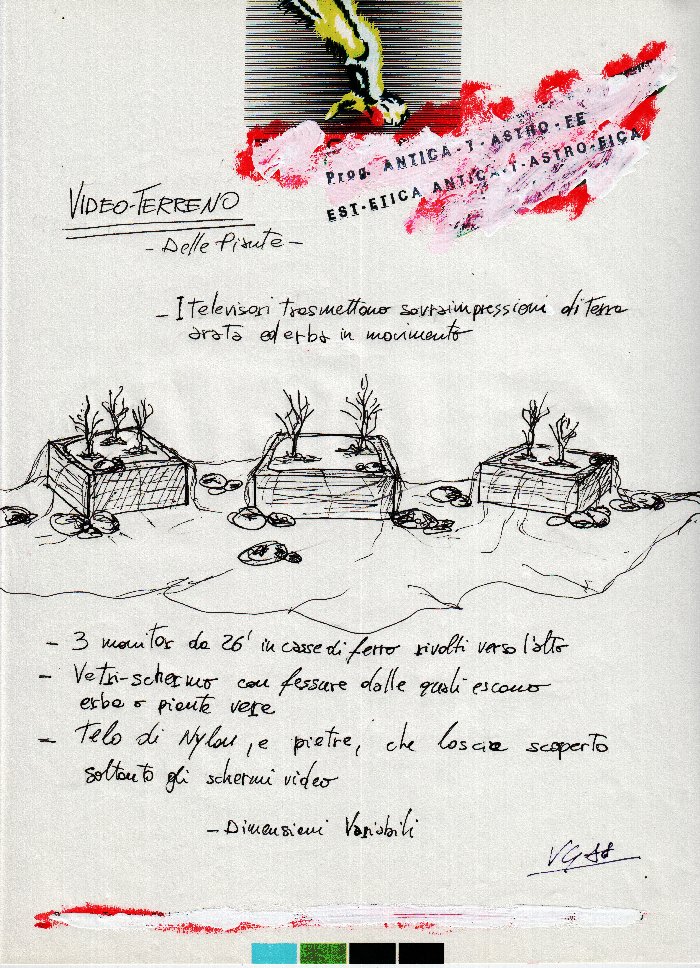 Prog. ANTICA-T-ASTRO-FE
EST-ETICA ANTICA-T-ASTRO-FICA
VIDEO-TERRENO
- Delle Piante -
- I televisori trasmettono sovraimpressioni di terra
arata ed erba in movimento
- 3 monitor da 26' in casse di ferro rivolti verso l'alto
- Vetri-schermo con fessure dalle quali escono
erba o piante vere
- Telo di Nylon, e pietre, che lascia scoperto
soltanto gli schermi video
- Dimensioni Variabili